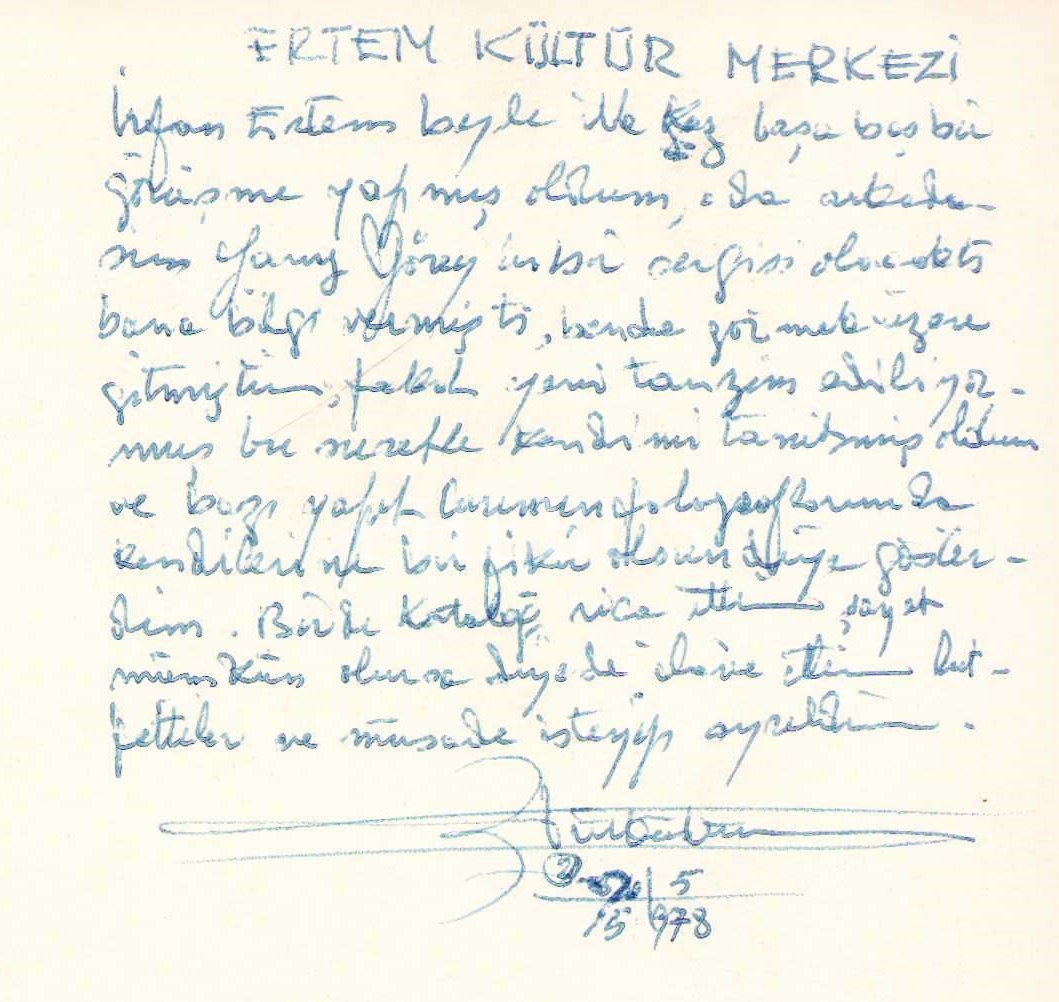 ERTEM KÜLTÜR MERKEZİ
İrfan Ertem beyle ilk kez başa baş bir
görüşme yapmış oldum, oda arkada-
şım Görey'in bir sergisi olacaktı
bana bilgi vermişti, bende görmek üzere
gitmiştim, fakat yeni tanzim ediliyor-
muş bu suretle kendimi tanıtmış oldum
ve bazı yapıtlarımın fotoğraflarımda
kendilerine bir fikir olsun diye göster-
dim. Birde Kataloğ rica ettim şayet
mümkün olursa diyede ilave ettim lut-
fettiler ve müsade isteyip ayrıldım.
5
15 978